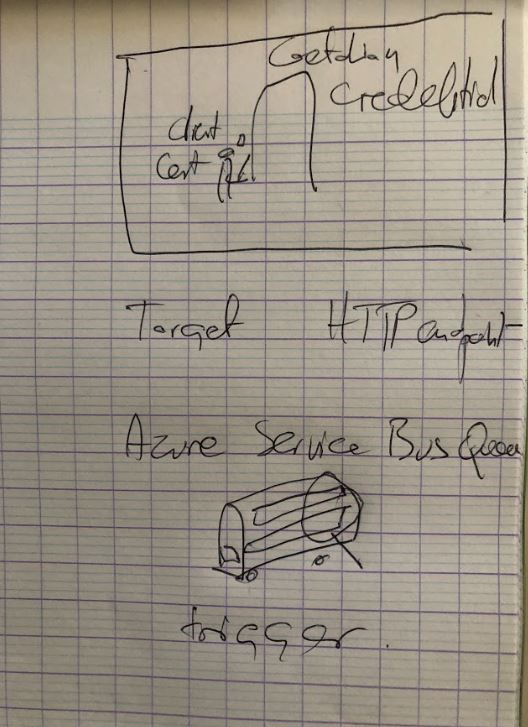 Credential
Client
Cert
Target HTTP endpoint
Azure Service Bus Queue
trigger.